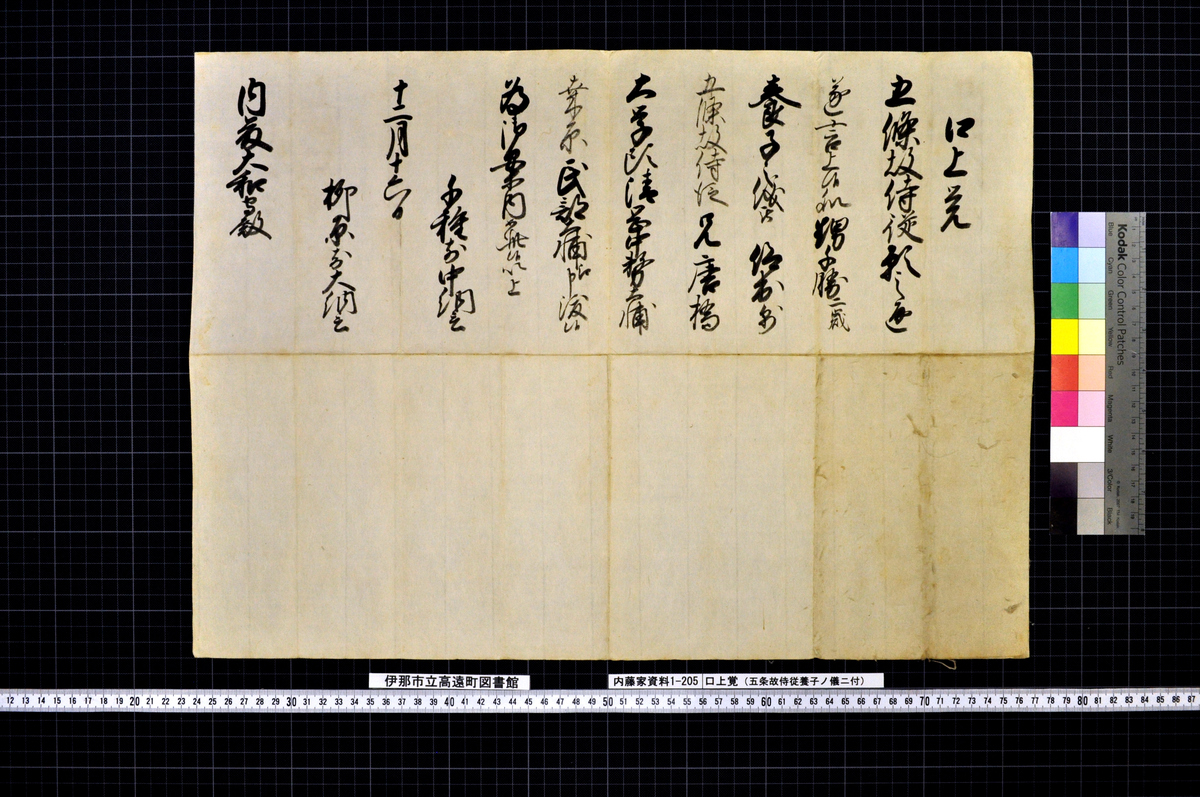 口上覚
五條故侍従願之通
遂言上候処甥千勝二歳
養子之儀
五條故侍従兄唐橋
大学頭清 中務大輔
桑原民部大輔
為御案内 以上
千種前中納言
十二月十六日
柳原前大納言
内藤大和守殿
伊那市立高遠町図書館
内藤家資料1-205 口上覚（五条故侍従養子ノ儀ニ付）
Kodak Color Control Patches
Blue Cyan Green Yellow Red Magenta White 3/Color Black
12 13 14 15 16 17 18 19 20 21 22 23 24 25 26 27 28 29 30 31 32 33 34 35 36 37 38 39 40 41 42 43 44 45 46 47 48 49 50 51 52 53 54 55 56 57 58 59 60 61 62 63 64 65 66 67 68 69 70 71 72 73 74 75 76 77 78 79 80 81 82 83 84 85 86 87